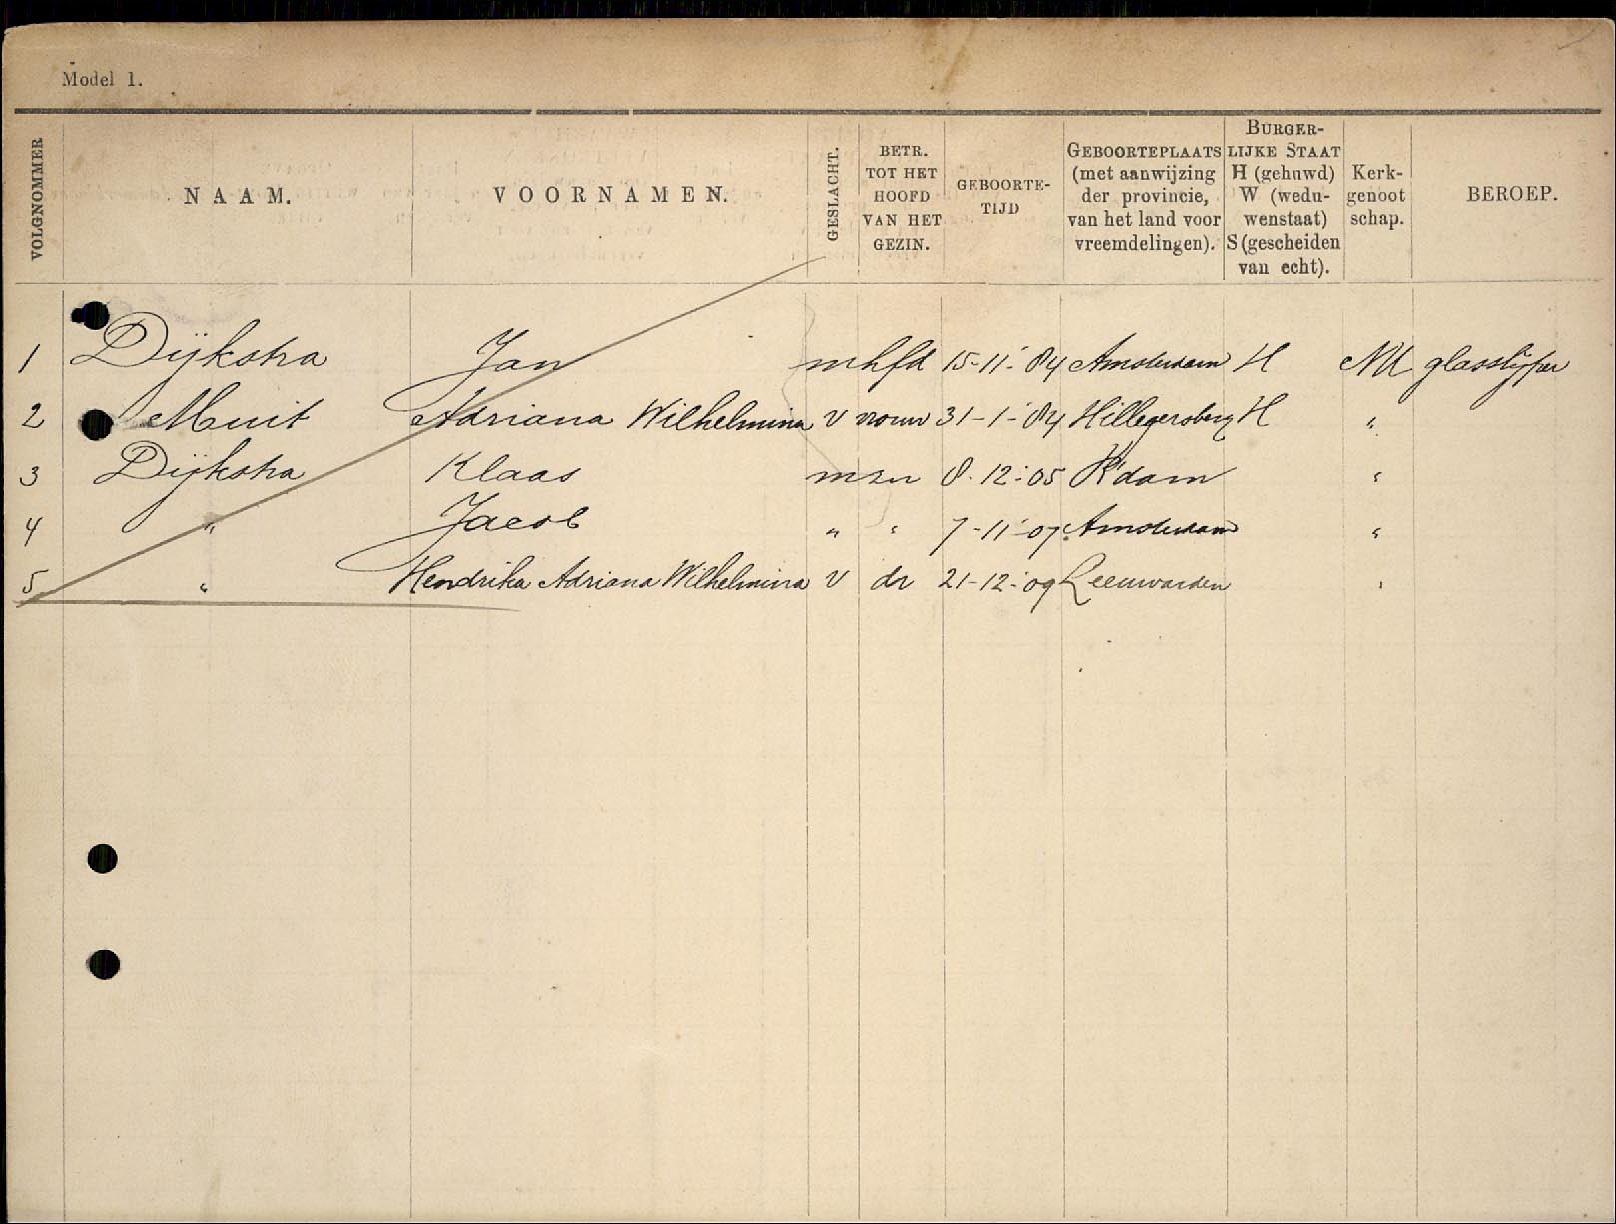 Model 1.
VOLGNOMMER NAAM. VOORNAMEN. GESLACHT. BETR. TOT HET HOOFD VAN HET GEZIN. GEBOORTE-TIJD GEBOORTEPLAATS (met aanwijzing der provincie, van het land voor vreemdelingen). BURGER-LIJKE STAAT H (gehuwd) W (wedu-wenstaat) S (gescheiden van echt). Kerk-genoot schap. BEROEP.
1 Dijkstra Jan m hfd 15-11-'84 Amsterdam H NH glasslijper
2 Muit Adriana Wilhelmina v vrouw 31-1-'84 Hillegersberg H "
3 Dijkstra Klaas m zn 8-12-'05 R'dam "
4 " Jacob " " 7-11-'07 Amsterdam "
5 " Hendrika Adriana Wilhelmina v dr 21-12-'09 Leeuwarden "